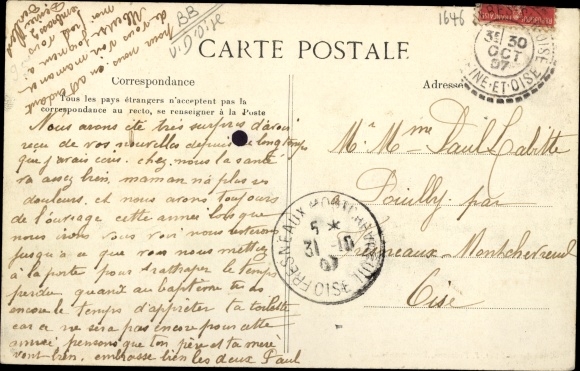 1646
BB
V.D'OISE
CARTE POSTALE
Correspondance
Adresse
Tous les pays étrangers n'acceptent pas la
correspondance au recto, se renseigner à la Poste
Nous avons été très surpris d'avoir
reçu de vos nouvelles depuis le longtemps
que j'avais ecris. chez nous la santé
va assez bien, maman n'a plus ses
douleurs. et nous avons toujours
de l'ouvrage cette année lorsque
nous irons vous voir nous resterons
jusqu'a ce que vous nous mettez
à la porte pour rattraper le temps
perdu quand au baptême tu as
encore le temps d'appreter ta toilette
car ce ne sera pas encore pour cette
année. pensons que ton père et ta mère
vont bien. embrasse bien les deux Paul
en attendant
de vous voir
M. Mme Paul Labitte
Pouilly par
Fresneaux-Montchevreuil
Oise
3E 30
OCT
07
SEINE-ET-OISE
FRESNEAUX-MONTCHEVREUIL
5 *
31-10
07
OISE